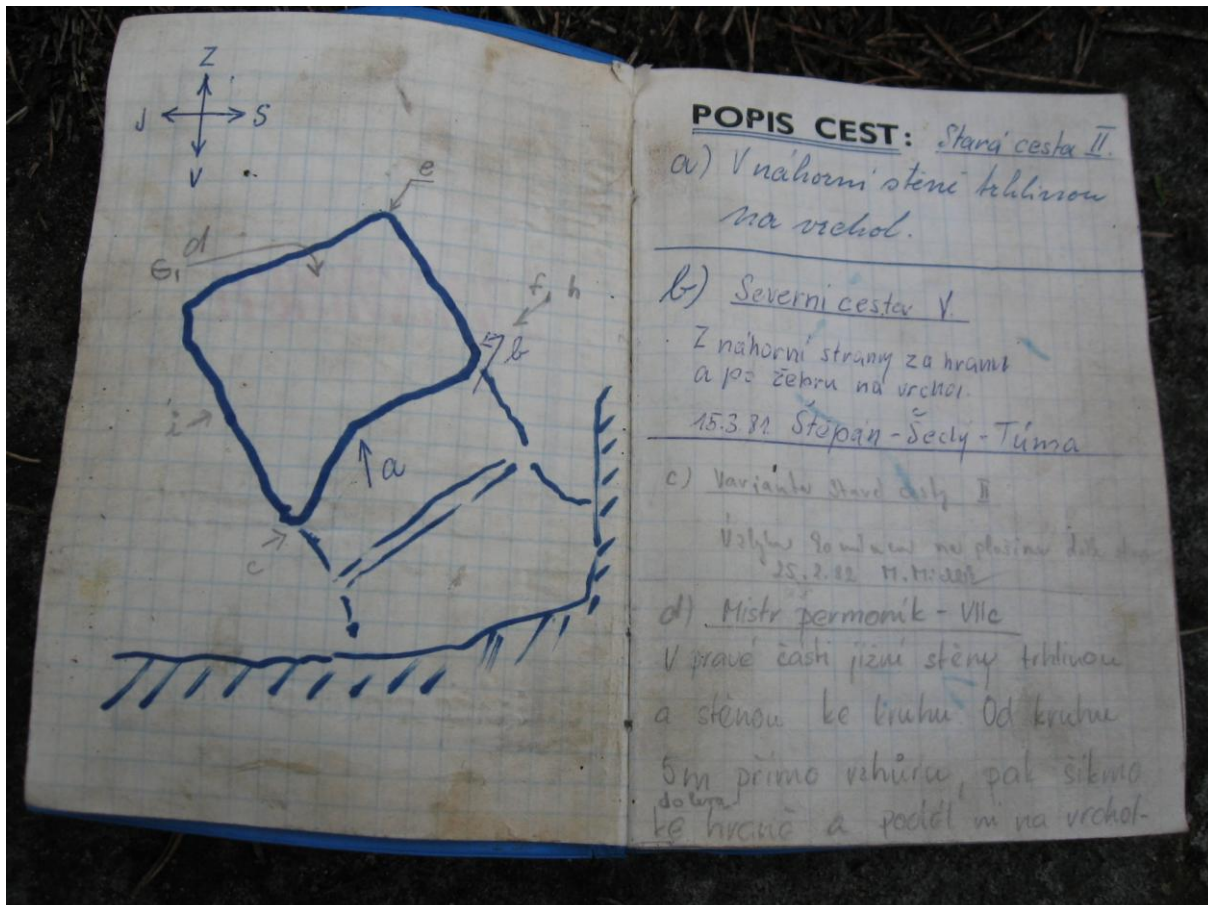 Z
J S
V
e
d
G,
f, h
b
i
a
c
POPIS CEST: Stará cesta II.
a) V náhorní stěně trhlinou
na vrchol.
b) Severní cesta V.
Z náhorní strany za hranu
a po žebru na vrchol.
15.3.81. Štěpán - Šedý - Tůma
c) Varianta Staré cesty II
na plošinu
25.2.82 M.
d) Mistr permoník - VIIc
V pravé části jižní stěny trhlinou
a stěnou ke kruhu Od kruhu
5m přímo vzhůru, pak šikmo
doleva
ke hraně a podél ní na vrchol-